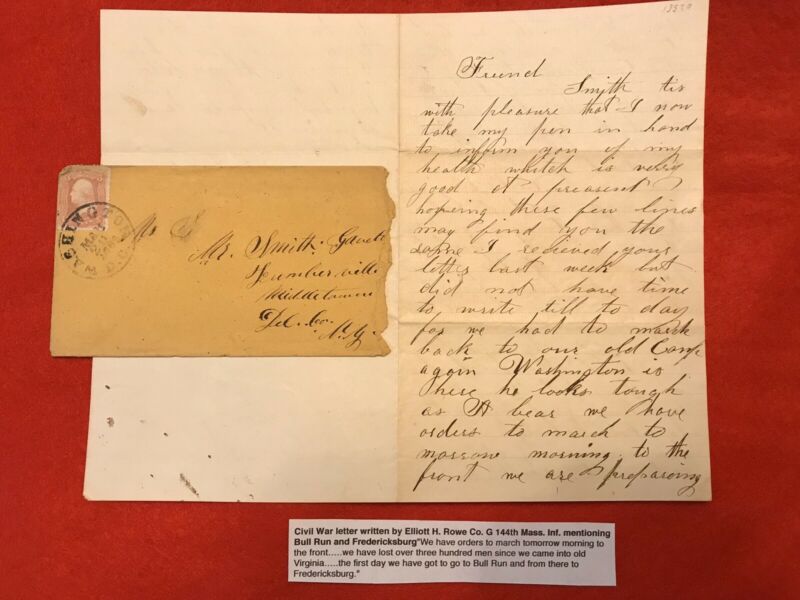 13520
Friend
Smith tis
with pleasure that I now
take my pen in hand
to inform you of my
health whitch is very
good at preasent
hopeing these few lines
may find you the
same I recieved your
letter last week but
did not have time
to write till to day
for we had to march
back to our old Camp
again Washington is
here he looks tough
as A bear we have
orders to march to
morrow morning to the
front we are prepareing
WASHINGTON D.C.
MAY
Mr. Smith
Middletown
Del. Co.
N.Y.
Civil War letter written by Elliott H. Rowe Co. G 144th Mass. Inf. mentioning
Bull Run and Fredericksburg"We have orders to march tomorrow morning to
the front.....we have lost over three hundred men since we came into old
Virginia.....the first day we have got to go to Bull Run and from there to
Fredericksburg."